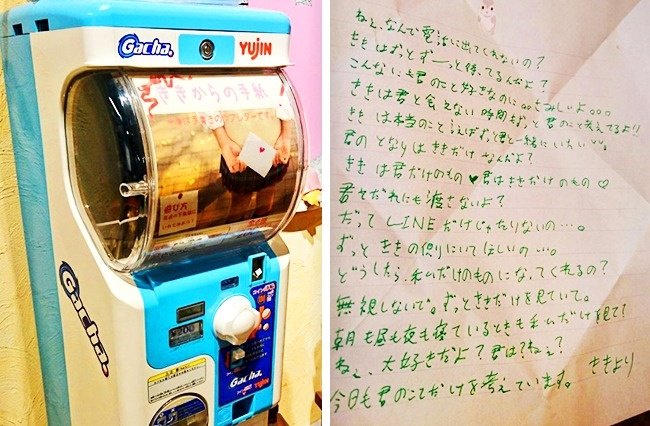 Gacha.
YUJIN
ききからの手紙
遊び方
200
Gacha.
Gacha.
YUJIN
ねぇ、なんで電話に出てくれないの?
ききはずっとず〜っと待ってるんだよ?
こんなにも君のこと好きなのに。。さみしいよ。。。
ききは君と会えない時間もずっと君のこと考えてるよ!!
ききは本当のこと言えばずっと君と一緒にいたい
君のとなりはききだけなんだよ?
ききは君だけのもの♥君はききだけのもの♡
君をだれにも渡さないよ?
だってLINEだけじゃたりないの…。
ずっとききの側にいてほしいの…。
どうしたら、私だけのものになってくれるの?
無視しないで。ずっとききだけを見ていて。
朝も昼も夜も寝ているときも私だけを見て!
ねぇ、大好きだよ?君は?ねぇ?
今日も君のことだけを考えています。 ききより